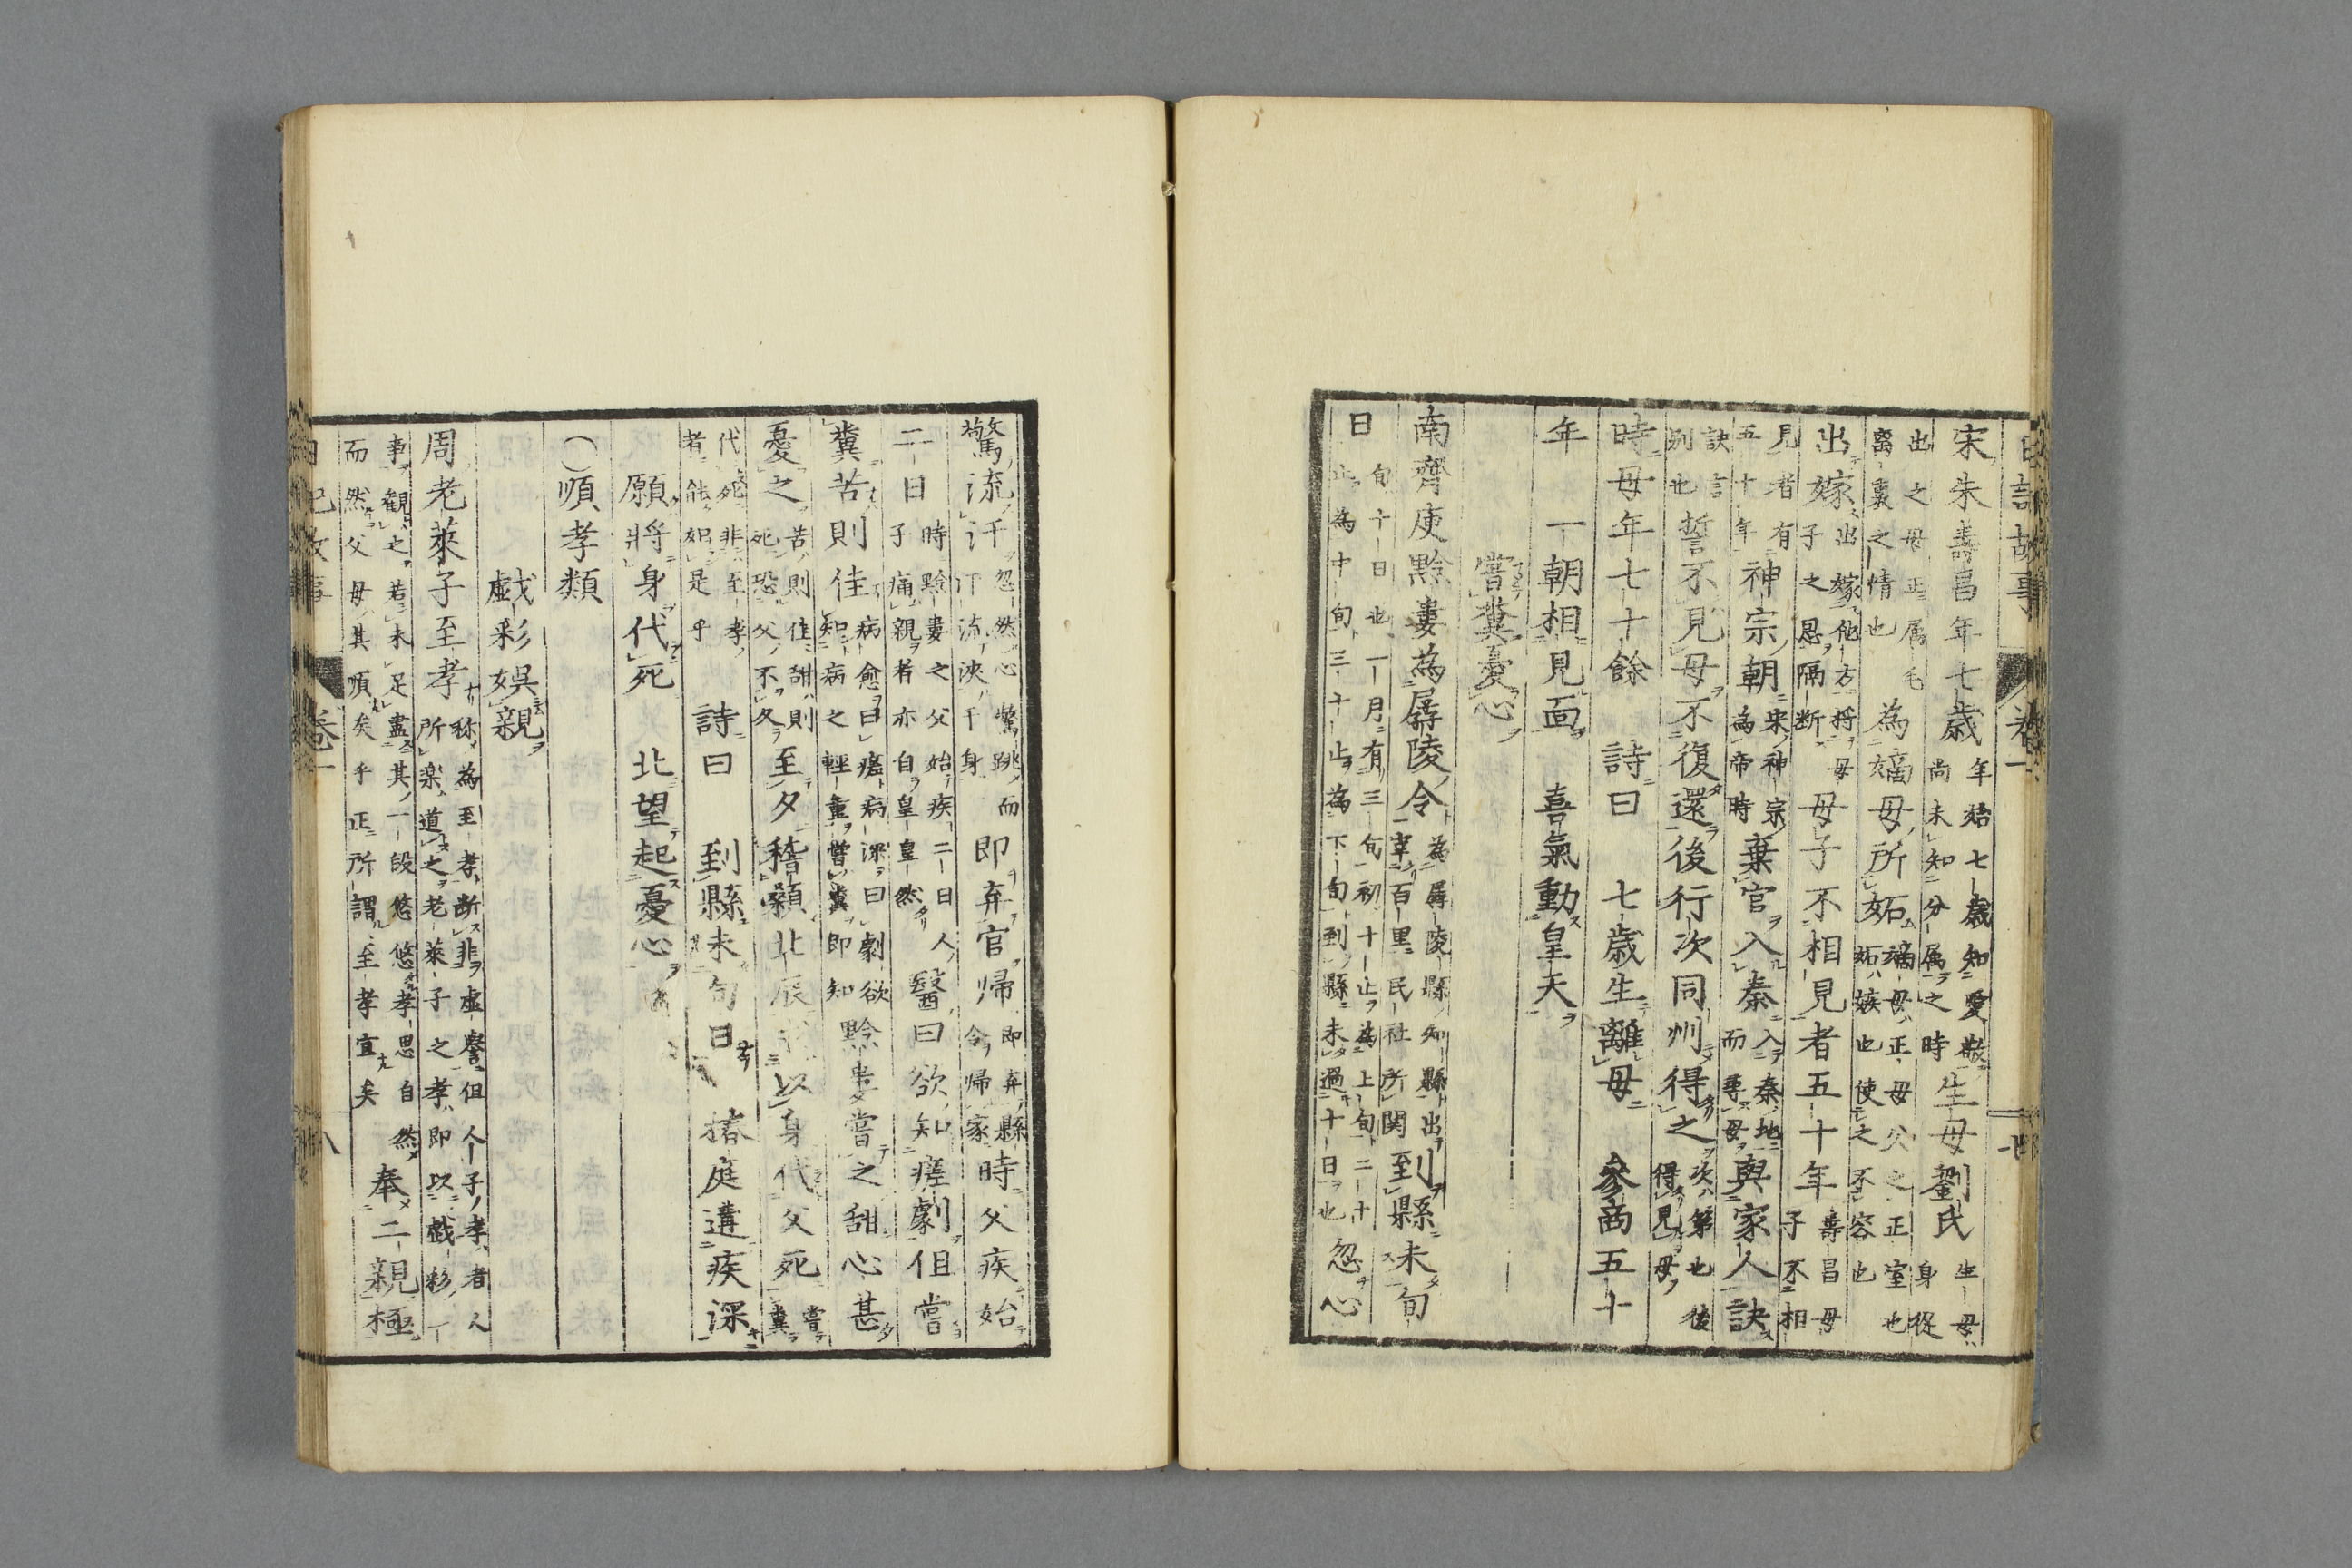 日記故事 卷一
宋朱壽昌年七歳年始七歳知愛敬尚未知分属之時生母劉氏生母身從
出之母正属毛离裏之情也為嫡母所妬嫡母正母父之正室也妬嫉也使之不容也
出嫁出嫁他方将母子之恩隔断母子不相見者五十年壽昌母子不相
見者有五十年神宗朝宋神宗為帝時棄官入秦入秦地而尋母與家人訣
訣言別也誓不見母不復還後行次同州得之次第也後得見母
時母年七十餘 詩曰 七歳生離母 參商五十
年 一朝相見面 喜氣動皇天
嘗糞憂心
南齊庾黔婁為孱陵令為孱陵縣知縣出宰百里民社所関到縣未旬
日旬十日也一月有三旬初十止為上旬二十止為中旬三十止為下旬到縣未過十日也忽心
驚流汗忽然心驚跳而汗流浹于身即弃官帰即弃縣令帰家時父疾始
二日時黔婁之父始疾二日人子痛親者亦自皇皇然醫曰欲知瘥劇但嘗
糞苦則佳病愈曰瘥病深曰劇欲知病之輕重嘗糞即知黔婁嘗之甜心甚
憂之苦則佳甜則死恐父不久至夕稽顙北辰求以身代父死嘗糞
代死非至孝者能如是乎 詩曰 到縣未旬日 椿庭遘疾深
願將身代死 北望起憂心
〇順孝類
戯彩娯親
周老萊子至孝称為至孝断非虚譽但人子ノ孝者人所楽道之老萊子之孝即以戯彩一
事觀之若未足盡其一段悠悠孝思自然而然父母其順矣乎正所謂至孝宜矣奉二親極
日記故事 卷一 八